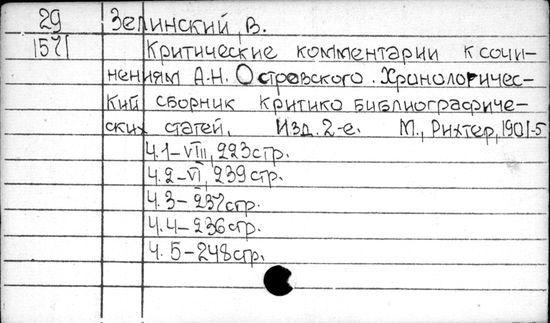 29 Зелинский, В.
1571 Критические комментарии к сочи-
нениям А.Н. Островского. Хронологичес-
кий сборник критико библиографриче-
ских статей. Изд. 2-е. М., Рихтер, 1901-5
Ч.1-VIII, 223 стр.
Ч.2-VI, 239 стр.
Ч.3-237 стр.
Ч.4-236 стр.
Ч.5-248 стр.